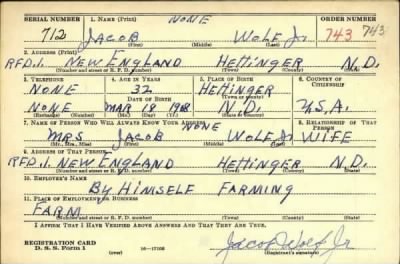 SERIAL NUMBER 1. NAME (Print) NONE ORDER NUMBER
712 JACOB WOLF Jr. 743 743
(First) (Middle) (Last)
2. ADDRESS (Print)
RFD.1. NEW ENGLAND HETTINGER N.D.
(Number and street or R. F. D. number) (Town) (County) (State)
3. TELEPHONE 4. AGE IN YEARS 5. PLACE OF BIRTH 6. COUNTRY OF CITIZENSHIP
NONE 32 HETTINGER
DATE OF BIRTH (Town or county)
NONE MAR 18 1908 N.D. U.S.A.
(Exchange) (Number) (Mo.) (Day) (Yr.) (State or country)
7. NAME OF PERSON WHO WILL ALWAYS KNOW YOUR ADDRESS 8. RELATIONSHIP OF THAT PERSON
NONE
MRS JACOB WOLF Jr WIFE
(Mr., Mrs., Miss) (First) (Middle) (Last)
9. ADDRESS OF THAT PERSON
RFD.1. NEW ENGLAND HETTINGER N.D.
(Number and street or R. F. D. number) (Town) (County) (State)
10. EMPLOYER'S NAME
BY HIMSELF FARMING
11. PLACE OF EMPLOYMENT OR BUSINESS
FARM
(Number and street or R. F. D. number) (Town) (County) (State)
I AFFIRM THAT I HAVE VERIFIED ABOVE ANSWERS AND THAT THEY ARE TRUE.
REGISTRATION CARD
D. S. S. Form 1 (over) 16—17105 Jacob Wolf Jr
(Registrant's signature)